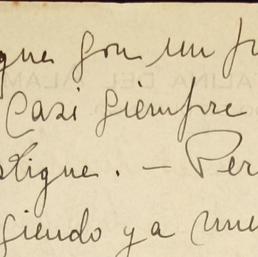 que son un pr
Casi siempre
stigue. — Per
giendo ya una